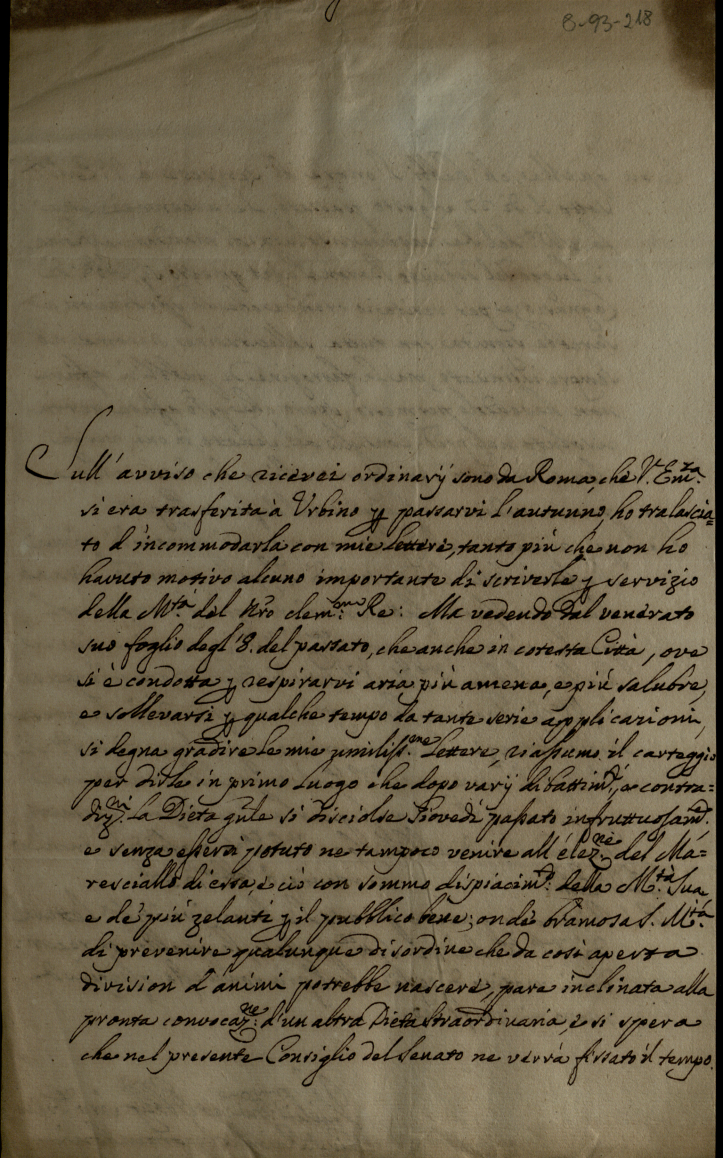 8-93-218
Sull' avviso che ricevei ordinarÿ sono da Roma, che V. Em.za
si era trasferita à Urbino p passarvi l'autunno, ho tralascia=
to d'incommodarla con mie lettere, tanto più che non ho
havuto motivo alcuno importante di scriverle p servizio
della M.tà del nr̃o clem.mo Re: Ma vedendo dal venerato
suo foglio degl' 8. del passato, che anche in cotesta Città, ove
si è condotta p respirarvi aria più amena, e più salubre,
e sollevarsi p qualche tempo da tante serie applicazioni,
si degna gradire le mie umiliss.me lettere, riassumo il carteggio
per dirle in primo luogo che dopo varÿ dibattim.ti, e contra=
diz.ni la Dieta gn̄le si disciolse Giovedì passato infruttuosam.te
e senza essersi potuto ne tampoco venire all' elez.ne del Ma=
resciallo di essa, e ciò con sommo dispiacim.to della M.tà Sua
e de' più zelanti p il pubblico bene; onde bramosa S. M.tà
di prevenire qualunque disordine che da così aperta
division d'animi potrebbe nascere, pare inclinata alla
pronta convocaz.ne d'un altra Dieta straordinaria, e si spera
che nel presente Consiglio del Senato ne verrà fissato il tempo.